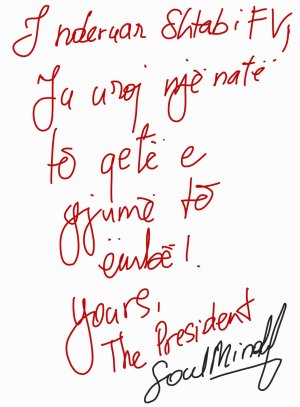 I nderuar Shtabi FV,
Ju uroj një natë
të qetë e
gjumë të
ëmbël.
Yours,
The President
SoulMindf